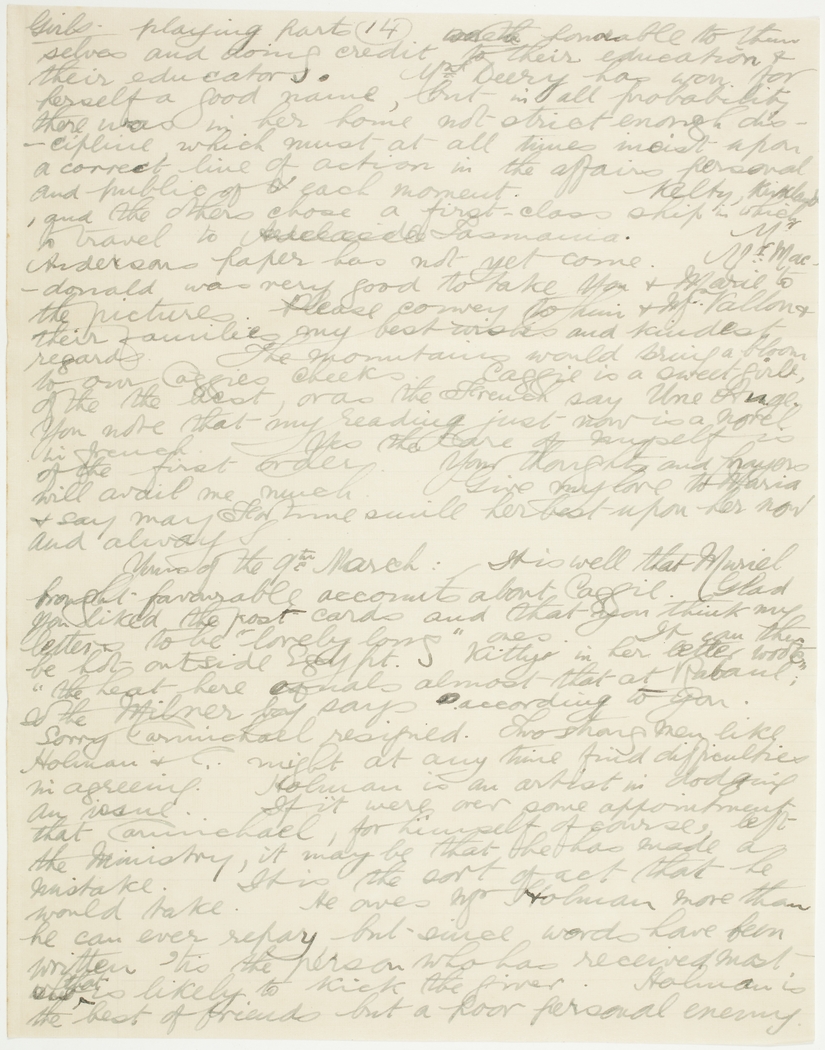 Girls - playing parts (14) honorable to them
selves and doing credit to their education &
their educators. Mrs Deery has won for
herself a good name, but in all probability
there was in her home not strict enough dis-
-cipline which must at all times insist upon
a correct line of action in the affairs personal
and public of each moment. Kelty,
and the others chose a first-class ship in which
to travel to Tasmania. Mr
Andersons paper has not yet come. Mr. Mac-
-donald was very good to take you & Marie to
the pictures. Please convey to him & Mr. Vallon &
their families my best wishes and kindest
regards. The mountains would bring a bloom
to our Caggies cheeks. Caggie is a sweet girlie,
of the the best, or as the French say Une Ange.
You note that my reading just now is a novel
in French. Yes the care of myself is
of the first order. Your thoughts and prayers
will avail me much. Give my love to Maria
& say may time smile her best upon her now
and alway.
Yours of the 9th March: It is well that Muriel
brought favourable accounts about Caggie. Glad
you liked the post cards and that you think my
letters to be "lovely long" ones. It can thus
be hot outside Egypt. Kitty in her letter wrote
"the heat here equals almost that at Rabaul",
so the Milner boy says according to you.
Sorry Carmichael resigned. Two strong men like
Holman & C. might at any time find difficulties
in agreeing. Holman is an artist in dodging
an issue. If it were over some appointment
that Carmichael, for himself of course, left
the Ministry, it may be that he has made a
mistake. It is the sort of act that he
would take. He owes Mr Holman more than
he can ever repay but since words have been
written 'tis the person who has received most
that is likely to kick the giver. Holman is
the best of friends but a poor personal enemy.